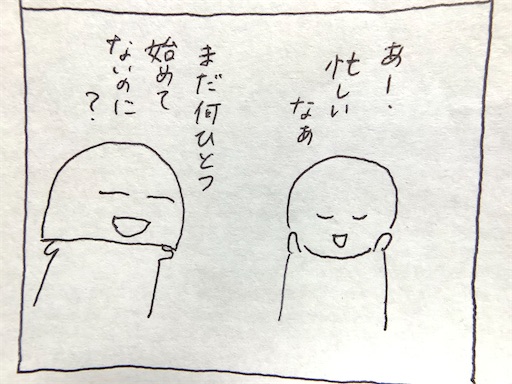 あー．
忙しい
なあ
まだ何ひとつ
始めて
ないのに
？